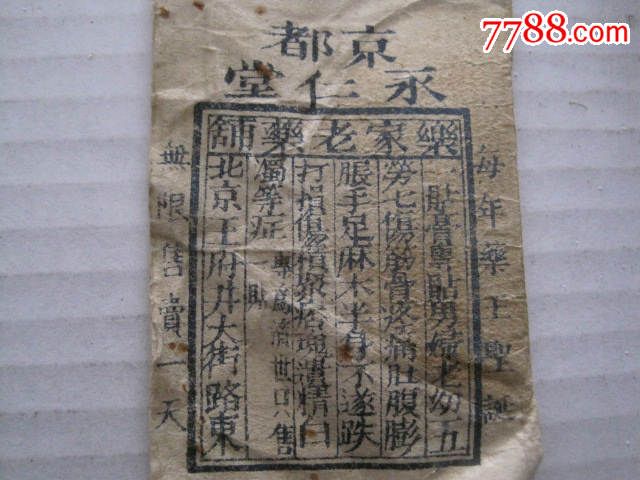 7788.com
京都
永仁堂
樂家老藥舖
每年藥王聖誕
一貼膏專貼男婦老幼五
勞七傷筋骨疼痛肚腹膨
脹手足麻木半身不遂跌
打損傷遺精白
濁等症
專為濟世只售
貼
北京王府井大街路東
無限售賣一天